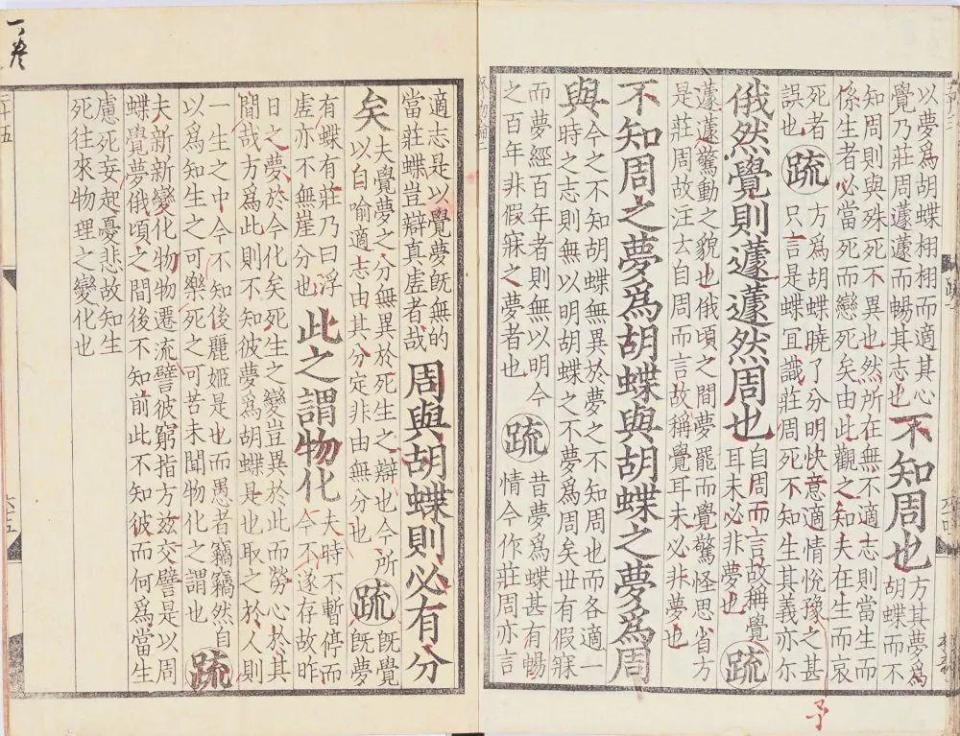 以夢爲胡蝶栩栩而適其心
覺乃莊周蘧蘧而暢其志也
不知周也
方其夢爲
胡蝶而不
知周則與殊死不異也然所在無不適志則當生而
係生者必當死而戀死矣由此觀之知夫在生而哀
死者
誤也
疏
方爲胡蝶曉了分明快意適情悅豫之甚
只言是蝶宜識莊周死不知生其義亦尓
俄然覺則蘧蘧然周也
自周而言故稱覺
耳未必非夢也
疏
蘧蘧驚動之貌也俄頃之間夢罷而覺驚怪思省方
是莊周故注去自周而言故稱覺耳未必非夢也
不知周之夢爲胡蝶與胡蝶之夢爲周
與
今之不知胡蝶無異於夢之不知周也而各適一
時之志則無以明胡蝶之不夢爲周矣世有假寐
而夢經百年者則無以明今
之百年非假寐之夢者也
疏
昔夢爲蝶甚有暢
情今作莊周亦言
予
適志是以覺夢旣無的
當莊蝶豈辯真虛者哉
周與胡蝶則必有分
矣
夫覺夢之分無異於死生之辯也今所
以自喻適志由其分定非由無分也
疏
旣覺
旣夢
有蝶有莊乃曰浮
虛亦不無崖分也
此之謂物化
夫時不暫停而
今不遂存故昨
日之夢於今化矣死生之變豈異於此而勞心於其
間哉方爲此則不知彼夢爲胡蝶是也取之於人則
一生之中今不知後麗姬是也而愚者竊竊然自
以爲知生之可樂死之可苦未聞物化之謂也
疏
夫新新變化物物遷流譬彼窮指方玆交譬是以周
蝶覺夢俄頃之間後不知前此不知彼而何爲當生
慮死妄起憂悲故知生
死往來物理之變化也
一卷